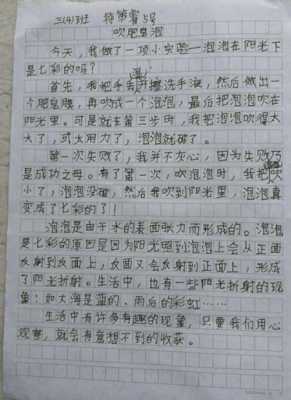 三(4)班 5号
吹肥皂泡
今天，我做了一项小实验—泡泡在阳光下
是七彩的吗？
首先，我把手会擦洗手液，然后做出一
个肥皂膜，再吹成一个泡泡，最后把泡泡吹在
阳光里。可是就在第三步时，我把泡泡吹得太
大了，或太用力了，泡泡就破了。
第一次失败了，我并不灰心，因为失败乃
是成功之母。有了第一次，吹泡泡时，我把吹
小了，泡泡没破，然后我吹到阳光里，泡泡真
变成了七彩的了！
泡泡是由于水的表面张力而形成的。泡泡
是七彩的原因是因为阳光照到泡泡上会从正面
反射到反面上，反面又会反射到正面上，形成
了阳光折射。生活中，也有一些阳光折射的现
象：如大海是蓝的、雨后的彩虹……
生活中有许多有趣的现象，只要我们用心
观察，就会有意想不到的收获。